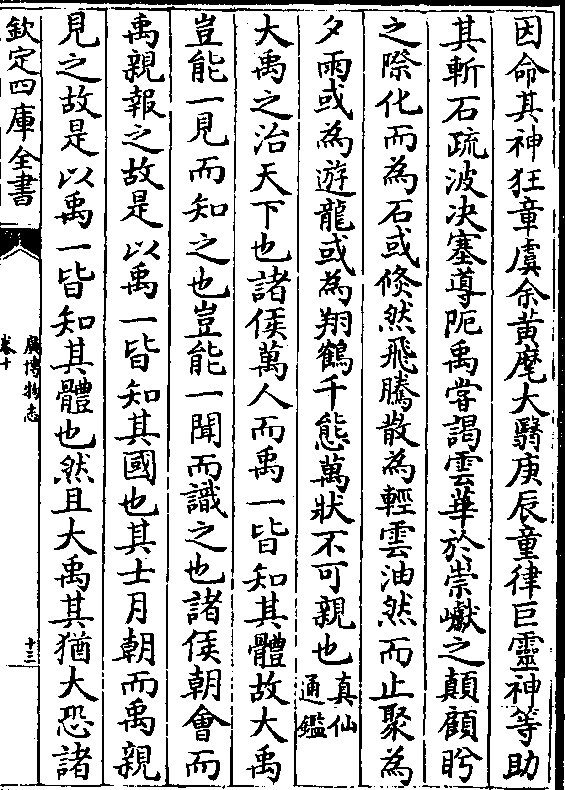 因命其神狂章虞余黄麾大翳庚辰童律巨靈神等助
其斬石疏波决塞導阨禹嘗謁雲華於崇巘之顛顧盼
之際化而為石或倐然飛騰散為輕雲油然而止聚為
夕雨或為遊龍或為翔鶴千態萬狀不可親也真仙通鑑
大禹之治天下也諸侯萬人而禹一皆知其體故大禹
豈能一見而知之也豈能一聞而識之也諸侯朝會而
禹親報之故是以禹一皆知其國也其士月朝而禹親
見之故是以禹一皆知其體也然且大禹其猶大恐諸
欽定四庫全書
廣博物志
卷十
十三